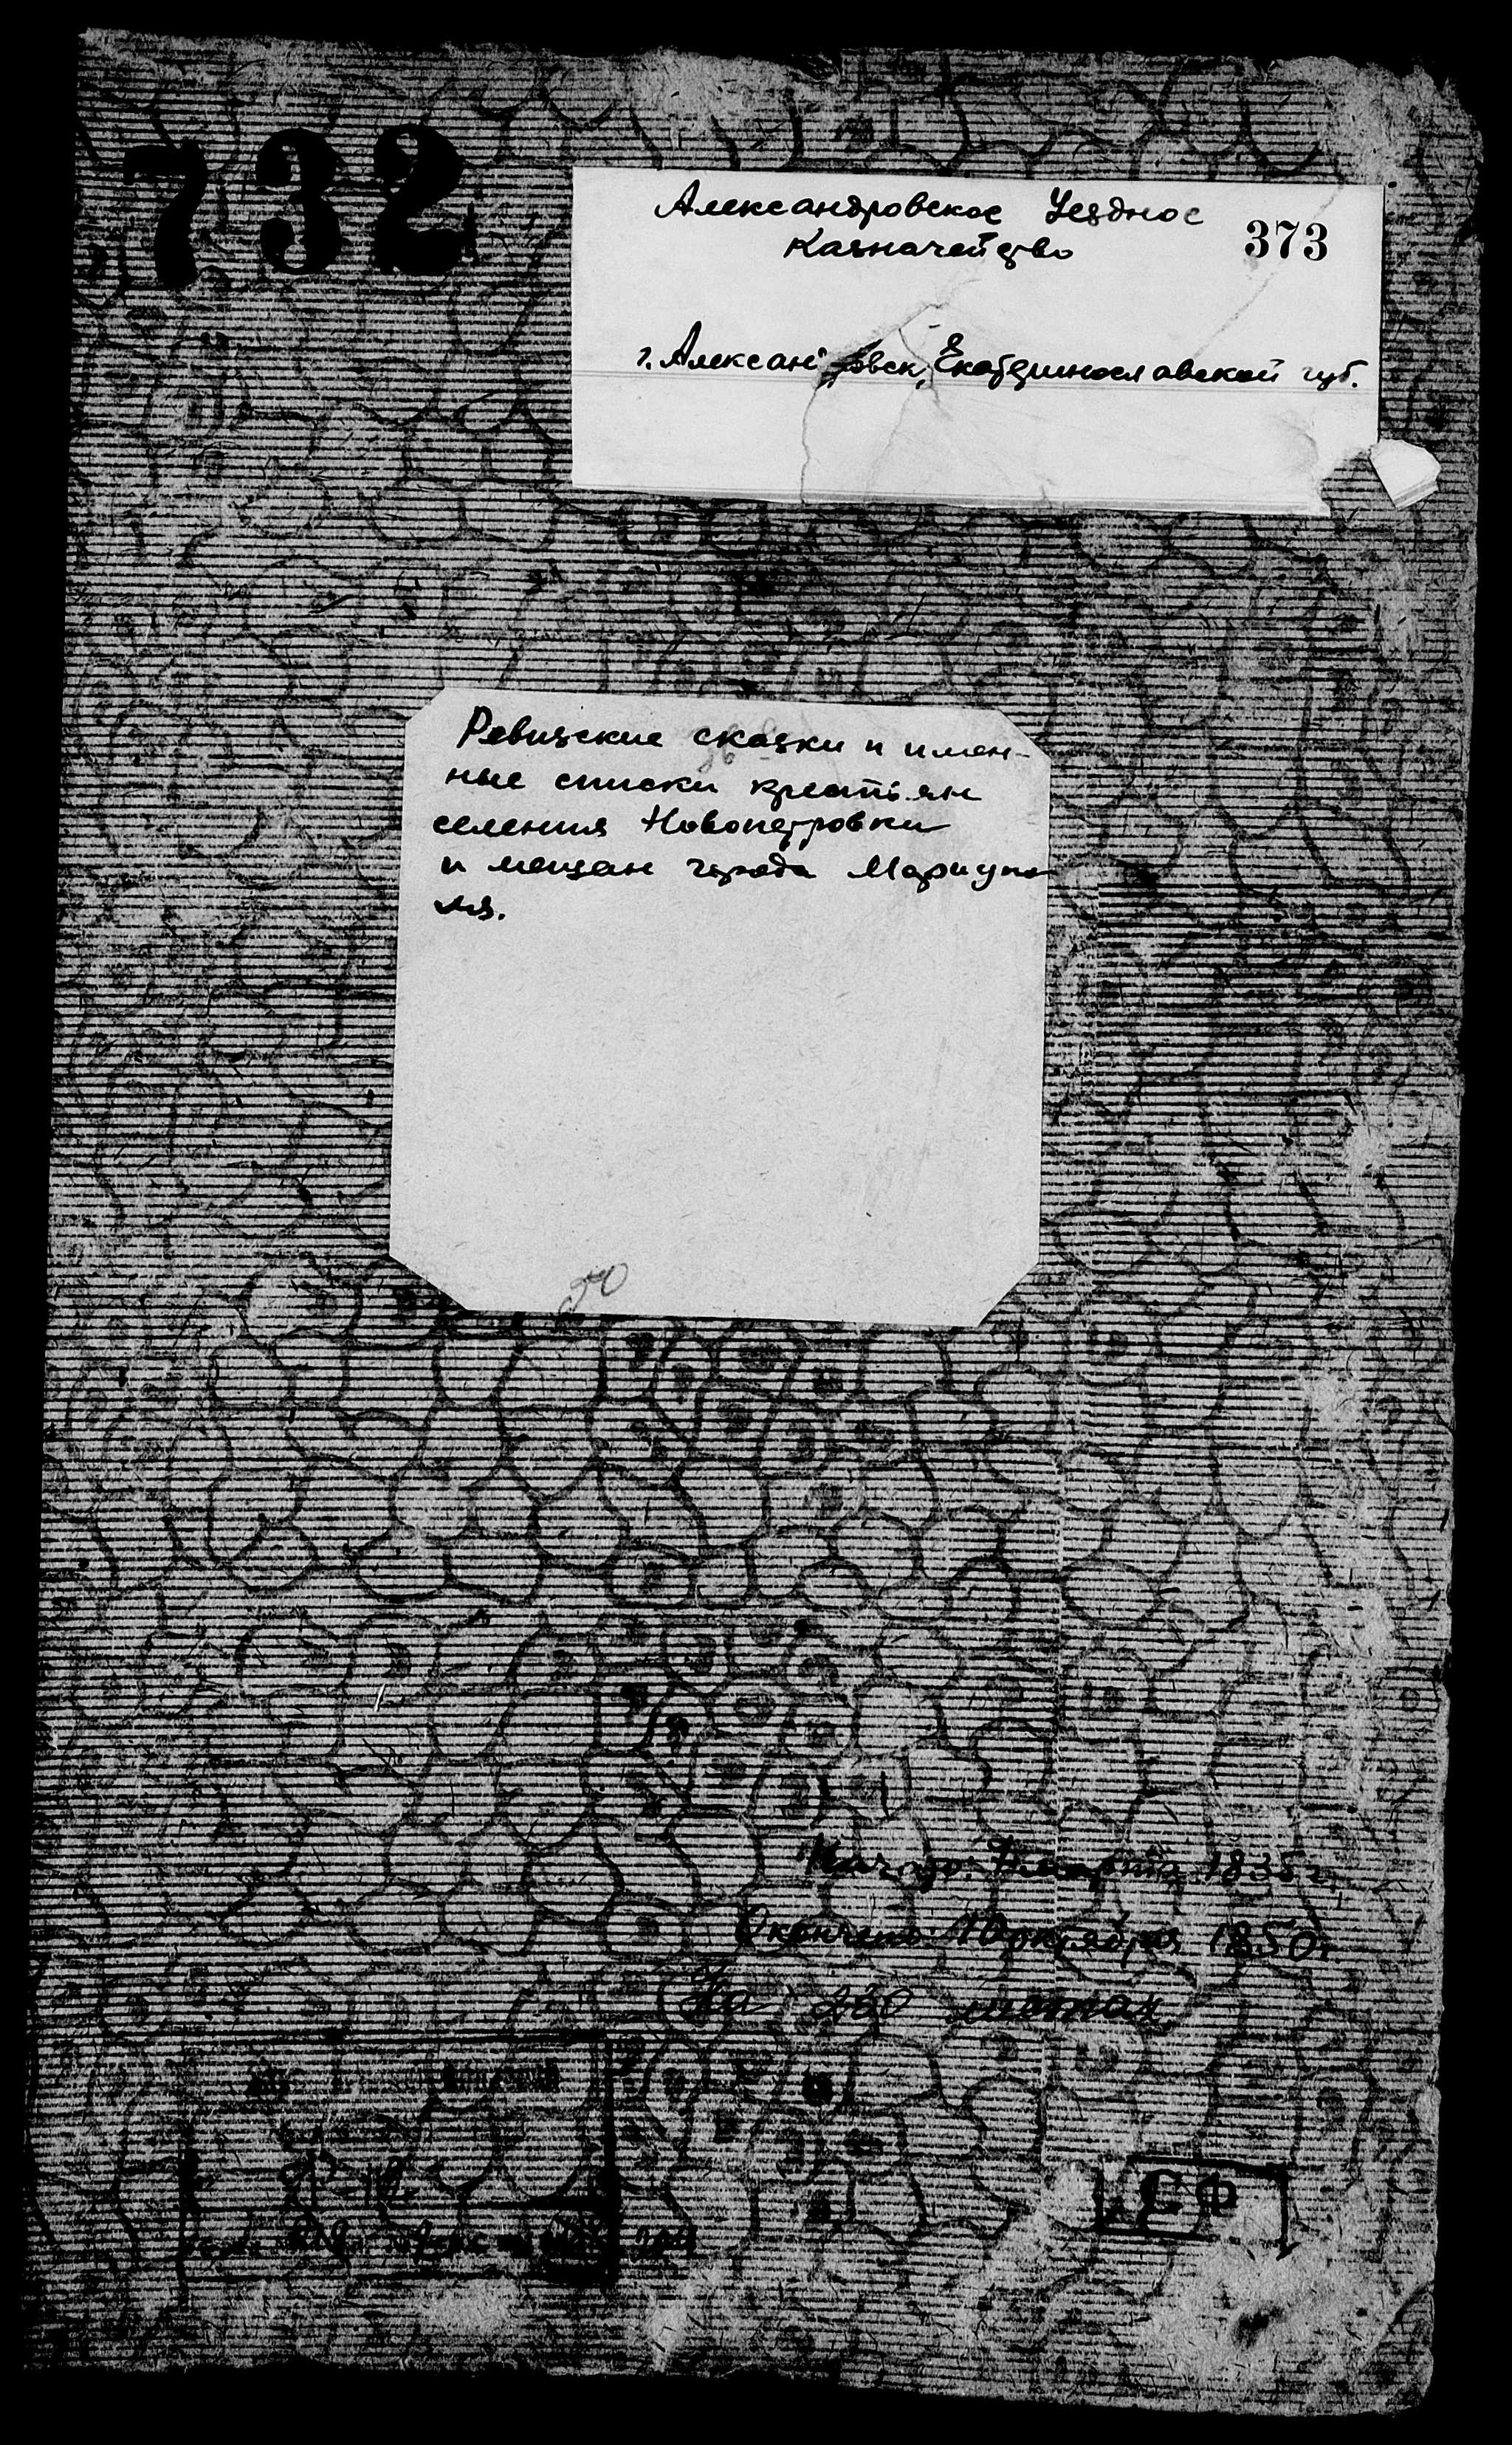 732
Александровское Уездное
Казначейство
373
г. Александровск, Екатеринославской губ.
Ревизские сказки и имен-
ные списки крестьян
селения Новопетровки
и мещан города Мариупо
ля.
20
Начато: марта 1835 г.
Окончено: 10 октября 1850 г.
На 280 листах
СФ